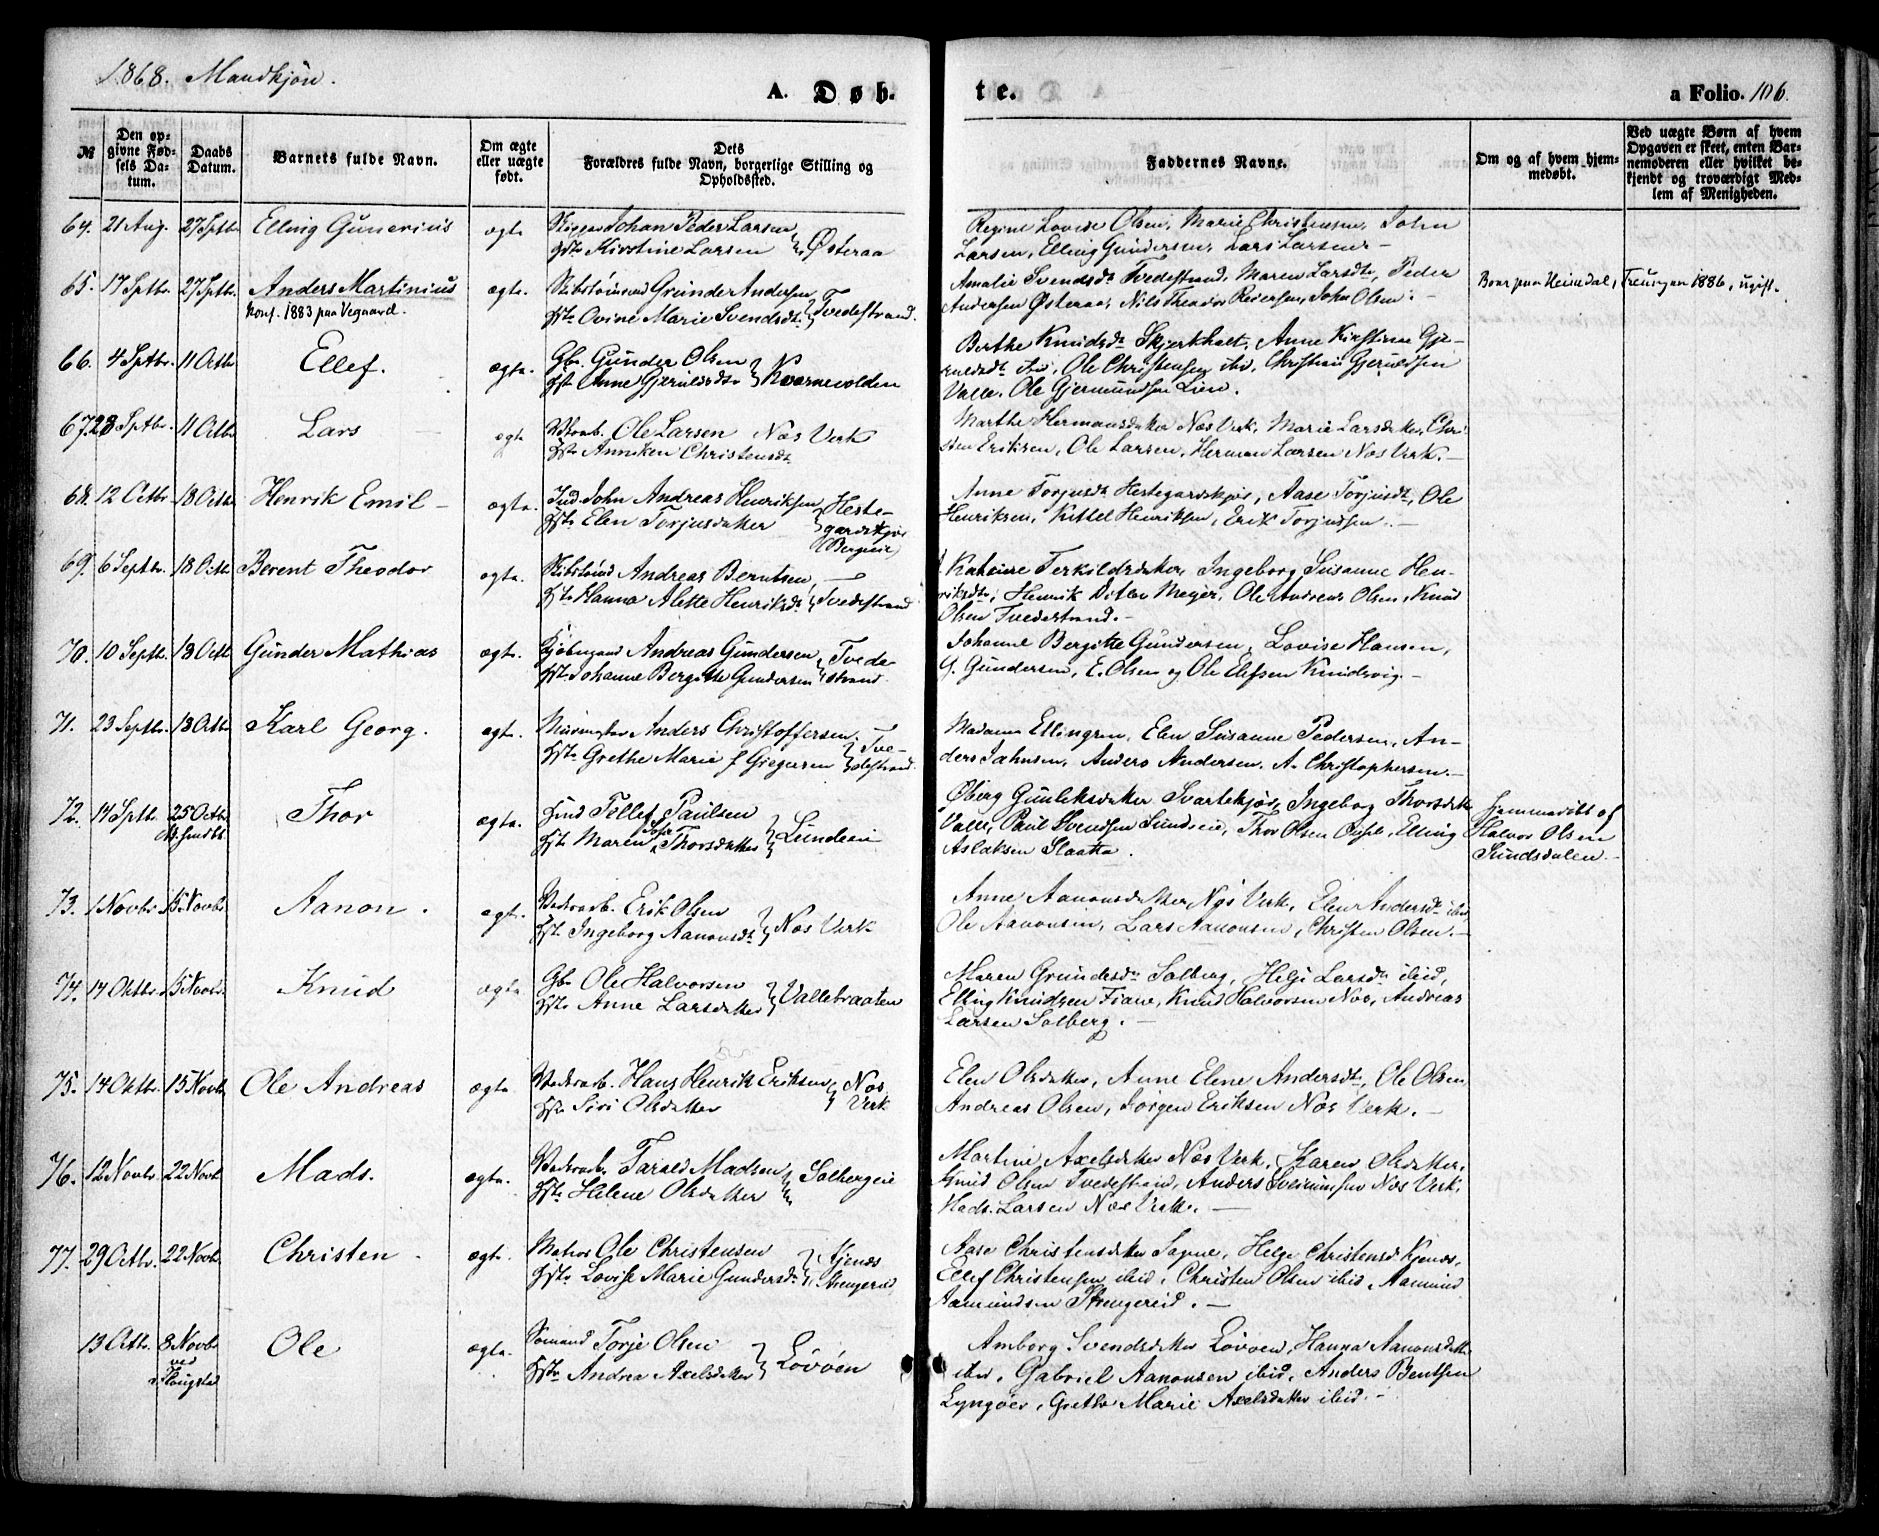 1868. Mandkjøn.
A. Døb- te. a Folio. 106.
№
Den opgivne Fødsels Datum.
Daabs Datum.
Barnets fulde Navn.
Om ægte eller uægte født.
Dets Forældres fulde Navn, borgerlige Stilling og Opholdssted.
Faddernes Navne.
Om og af hvem hjemmedøbt.
Ved uægte Børn af hvem Opgaven er skeet, enten Barnemoderen eller hvilket bekjendt og troværdigt Medlem af Menigheden.
64. 21 Aug. 27 Sptbr. Elling Gunerius ægte Skipper Johan Peder Larsen
Hst. Kirstine Larsen } Østeraa
Regine Lovise Olsen, Marie Christensen, John
Larsen, Elling Gundersen, Lars Larsen –
65. 17 Sptbr. 27 Sptb. Anders Martinius ægte. Gunder Andersen
Konf. 1883 paa Vegaard.
Hst. Ovine Marie Svendsdt. } Tvedestrand.
Amalie Svendsdt Tvedestrand, Maren Larsdt, Peder
Andersen Østeraa, Nils Theodor Pedersen, John Olsen. –
1886, ugift.
66. 4 Sptbr. 11 Octbr. Ellef. ægte. Gbr. Gunder Olsen
Hst. Anne Gjerulsdtr } Kvarnevolden
Berthe Knudsdt Skjerkholt, Anne Kirstine Gje-
ruldsdt ibd, Ole Christensen ibd, Christian Gjeruldsen
Valle. Ole Gjermundsen Lien.
67. 23 Sptbr. 11 Octbr Lars ægte Ole Larsen Næs Verk
Hst. Anniken Christensdt.
Marthe Hermansdatter Næs Verk, Marie Larsdatter, Chri-
sten Eriksen, Ole Larsen, Herman Larsen Næs Verk. –
68. 12 Octbr. 18 Octbr Henrik Emil – ægte. Ind. John Andreas Henriksen
Hst. Elen Torjusdatter } Heste-
gardskjær
Anne Torjusdt Hestegardskjær, Aase Torjusdt, Ole
Henriksen, Kittel Henriksen, Erik Torjussen. –
69. 6 Septbr. 18 Octb Berent Theodor ægte. Andreas Berntsen,
Hst. Hanna Alette Henriksdt. } Tvedestrand
Terkildsdatter, Ingeborg Susanne Hen-
riksdt, Henrik Ditlev Meyer, Ole Andreas Olsen, Knud
Olsen Tvedestrand. –
70. 10 Septb. 18 Octb Gunder Mathias ægte. Kjøbmand Andreas Gundersen
Hst. Johanne Bergitte Gundersen } Tvede-
strand
Johanne Bergitte Gundersen, Lovise Hansen,
G. Gundersen, E. Olsen og Ole Elefsen Knudsvig. –
71. 23 Septbr. 18 Octbr Karl Georg. ægte. Anders Christoffersen
Hst. Grethe Marie f Giegersen } Tve-
destrand
Madame Ellingsen, Elen Susanne Pedersen, An-
ders Jahnsen, Anders Andersen. A. Christophersen. –
72. 14 Sptb. 25 Octbr Thor ægte. Tellef Paulsen
Hst. Maren Thorsdatter } Lundeeie
Øberg Gunleksdatter Svartekjær, Ingeborg Thorsdatter
Valle, Paul Svendsen Lundeeie, Thor Olsen, Elling
Aslaksen Slaatta.
Hjemmedøbt af
Halvor Olsen
Sundsdalen. –
73. 1 Novbr. 15 Novbr Aanon. ægte. Erik Olsen
Hst. Ingeborg Aanonsdt } Næs Verk
Anne Aanonsdatter Næs Verk, Elen Andersdt ibid
Ole Aanonsen, Lars Aanonsen, Christen Olsen. –
74. 14 Oktbr. 15 Novbr. Knud ægte Gbr Ole Halvorsen
Hst. Anne Larsdatter } Vallebraaten
Maren Gundersdt. Solberg, Helje Larsdt ibid,
Elling Knudsen Fiane, Knud Halvorsen Næs, Andreas
Larsen Solberg. –
75. 14 Oktbr. 15 Novbr Ole Andreas ægte Hans Henrik Eriksen
Hst. Siri Olsdatter } Næs
Verk
Elen Olsdatter, Anne Elene Andersdt, Ole Olsen
Andreas Olsen, Jørgen Eriksen Næs Verk. –
76. 12 Novbr. 22 Novb Mads. ægte. Tarald Madsen
Hst. Helene Olsdatter } Solbergeie
Martine Axelsdatter Næs Verk, Karen Olsdatter,
Knud Olsen Tvedestrand, Anders Næs Verk,
Mads Larsen Næs Verk. –
77. 29 Octbr. 22 Novb Christen ægte. Matros Ole Christensen
Hst. Lovise Marie Gundersdt } Kjenæs
Strengereid
Aase Christensdatter Sagene, Helge Christensd Kjenæs,
Ellef Christensen ibid, Christen Olsen ibid, Aamund
Aamundsen Strengereid. –
13 Octbr. 8 Novbr Ole ægte. Sømand Torje Olsen
ved
Hst. Andrea Axelsdatter } Løvøen
Amborg Svendsdatter Løvøen, Hanna Aanonsdatter
ibid, Gabriel Aanonsen ibid, Anders Bentsen
Lyngøer, Grethe Marie Axelsdatter ibid. –